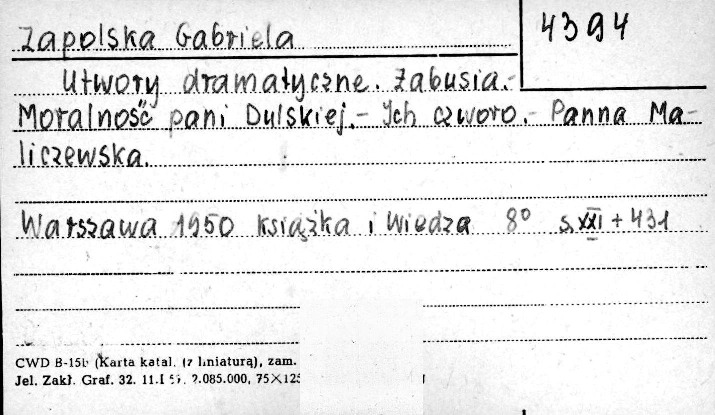 Zapolska Gabriela
4394
Utwory dramatyczne. Żabusia.-
Moralność pani Dulskiej.- Ich czworo.- Panna Ma-
liczewska.
Warszawa 1950 Książka i Wiedza 8° s. XXI + 431
CWD B-15b (Karta katal. (z liniaturą), zam.
Jel. Zakł. Graf. 32. 11.I 2.085.000, 75×125